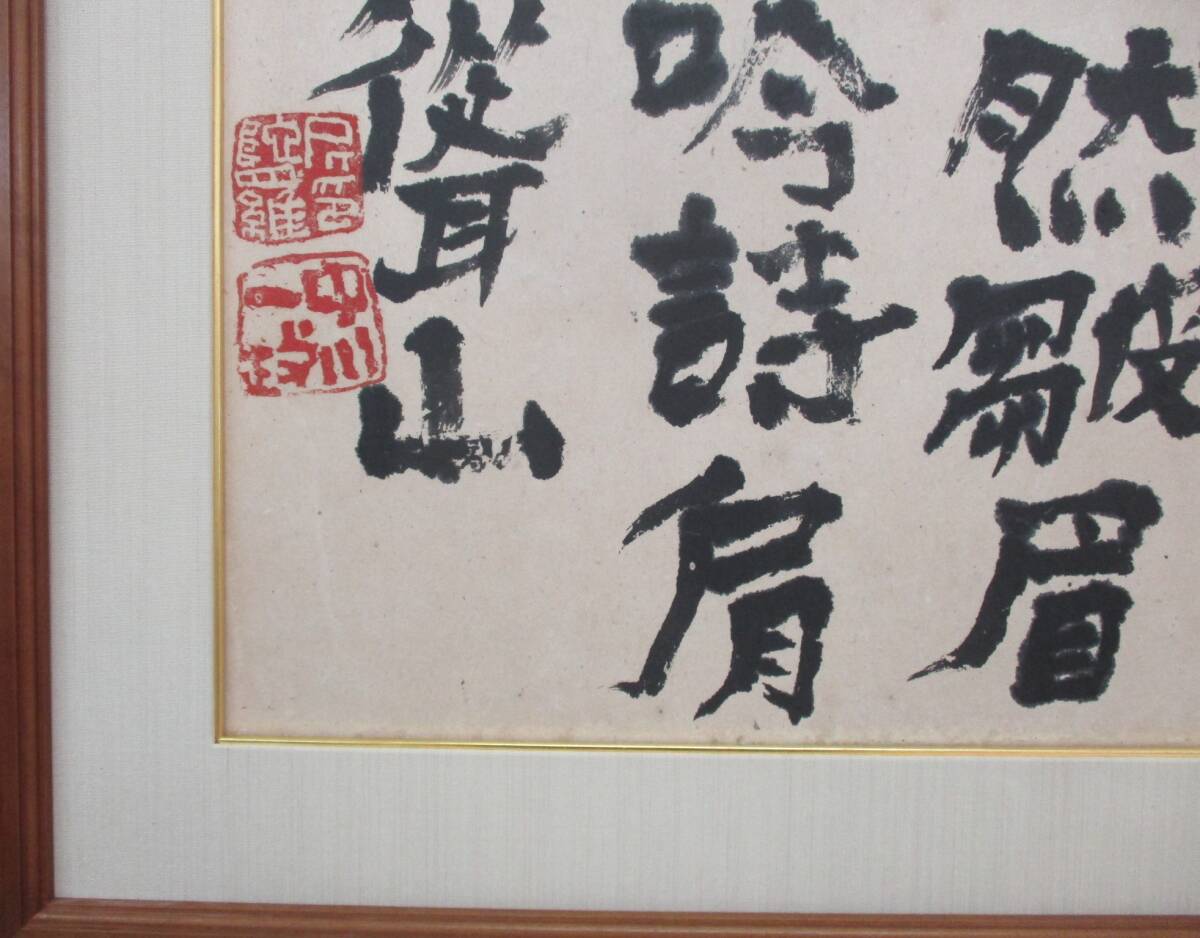 然皺眉
吟詩肩
聳山
中川一政